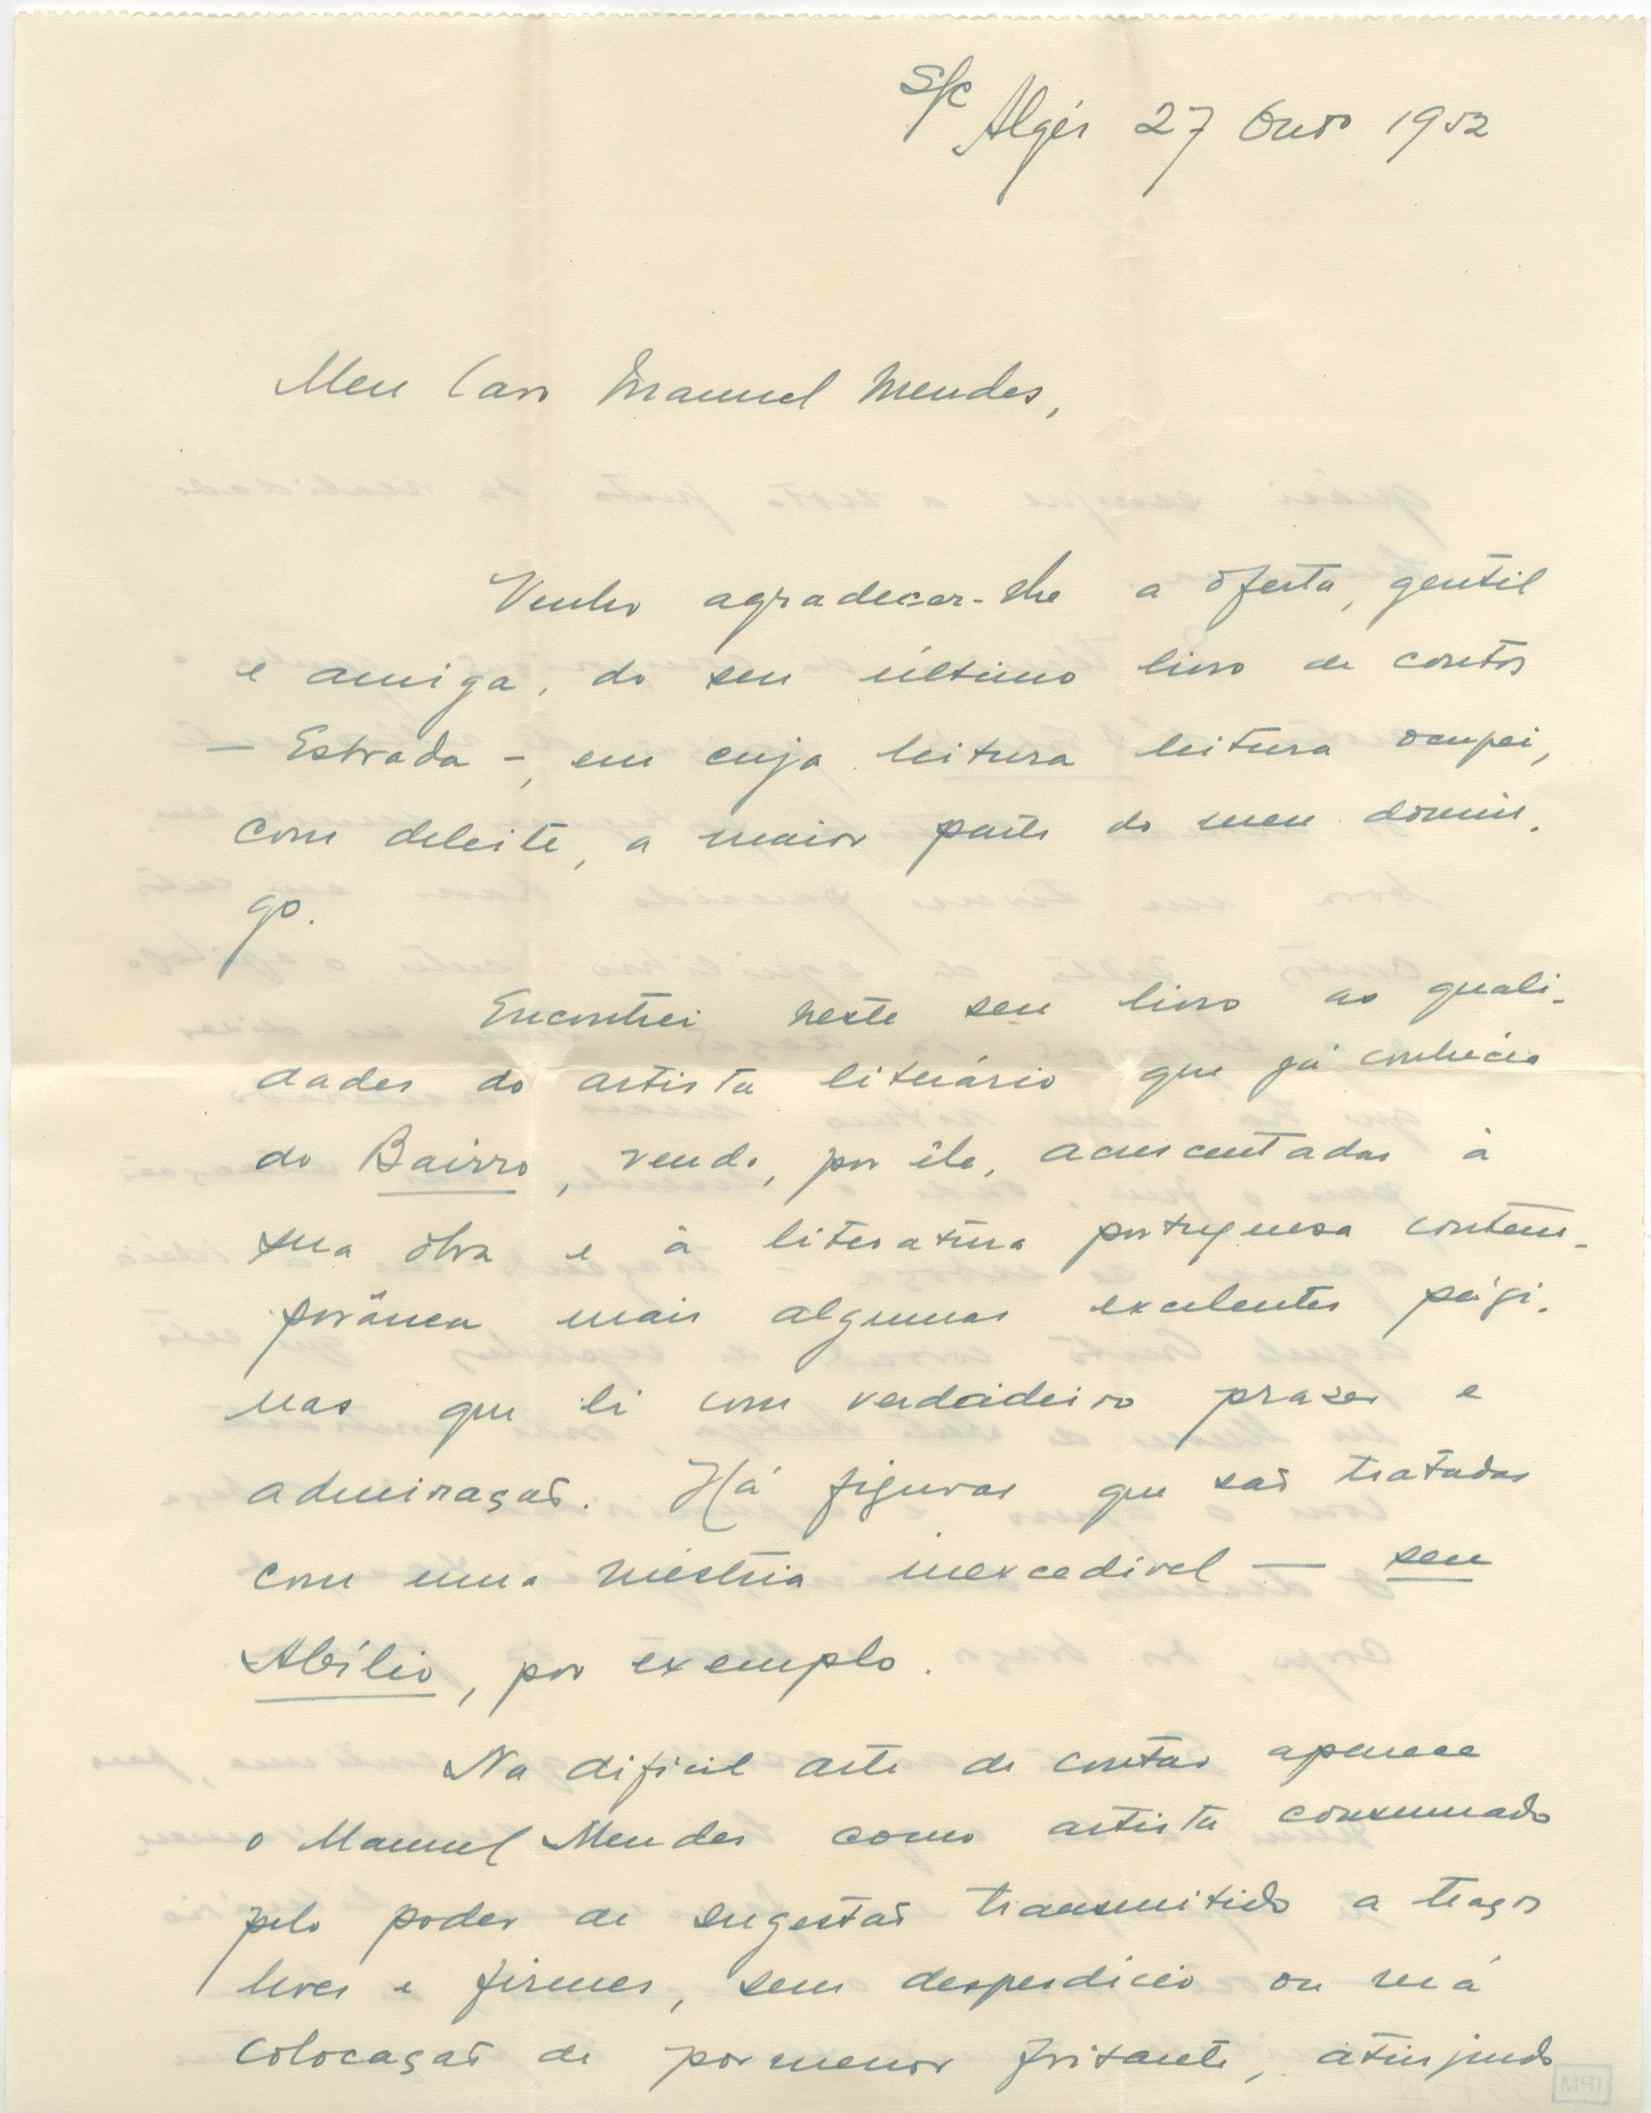 S/c Algés 27 Out⁰ 1952
Meu Caro Manuel Mendes,
Venho agradecer-lhe a oferta, gentil
e amiga, do seu último livro de contos
— Estrada —, em cuja leitura leitura ocupei,
com deleite, a maior parte do meu domin-
go.
Encontrei neste seu livro as quali-
dades do artista literário que já conhecia
do Bairro, vendo, por êle, acrescentadas à
sua obra e à literatura portuguesa contem-
porânea mais algumas excelentes pági-
nas que li com verdadeiro prazer e
admiração. Há figuras que são tratadas
com uma mestria inexcedível — seu
Abílio, por exemplo.
Na difícil arte de contar aparece
o Manuel Mendes como artista consumado
pelo poder de sugestão transmitido a traços
leves e firmes, sem desperdício ou má
colocação de pormenor frisante, atinjindo